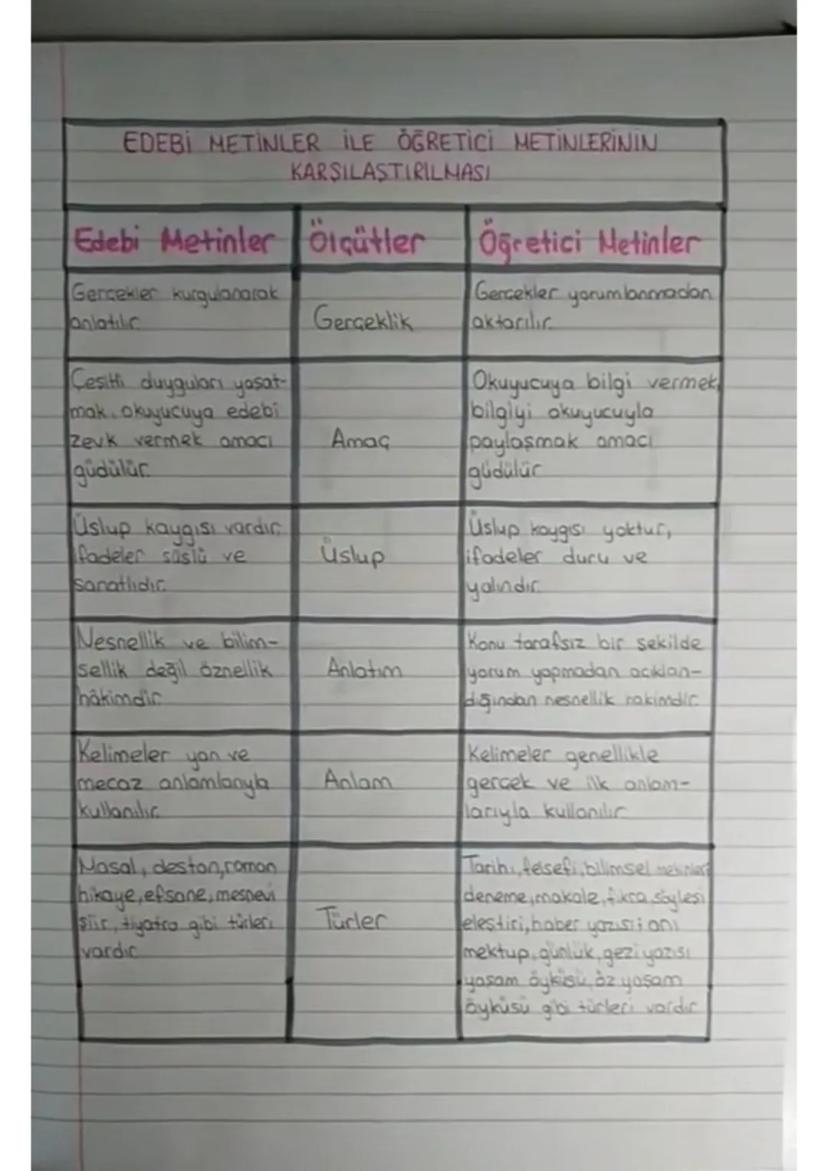 EDEBİ METİNLER İLE ÖĞRETİCİ METİNLERİNİN
KARŞILAŞTIRILMASI
Edebi Metinler
Ölçütler
Öğretici Metinler
Gerçekler kurgulanarak
anlatılır.
Gerçeklik
Gerçekler yorumlanmadan
aktarılır.
Çeşitli duyguları yaşat-
mak, okuyucuya edebi
zevk vermek amacı
güdülür.
Amaç
Okuyucuya bilgi vermek,
bilgiyi okuyucuyla
paylaşmak amacı
güdülür
Üslup kaygısı vardır.
ifadeler süslü ve
sanatlıdır.
Üslup
Üslup kaygısı yoktur,
ifadeler duru ve
yalındır.
Nesnellik ve bilim-
sellik değil öznellik
hâkimdir.
Anlatım
Konu tarafsız bir şekilde
yorum yapmadan açıklan-
dığından nesnellik hakimdir.
Kelimeler yan ve
mecaz anlamlarıyla
kullanılır.
Anlam
Kelimeler genellikle
gerçek ve ilk anlam-
larıyla kullanılır
Masal, destan, roman
hikaye, efsane, mesnevi
şiir, tiyatro gibi türleri
vardır.
Türler
Tarihi, felsefi, bilimsel metinler
deneme, makale, fıkra, söyleşi
eleştiri, haber yazısı, anı
mektup, günlük, gezi yazısı
yaşam öyküsü, öz yaşam
öyküsü gibi türleri vardır.